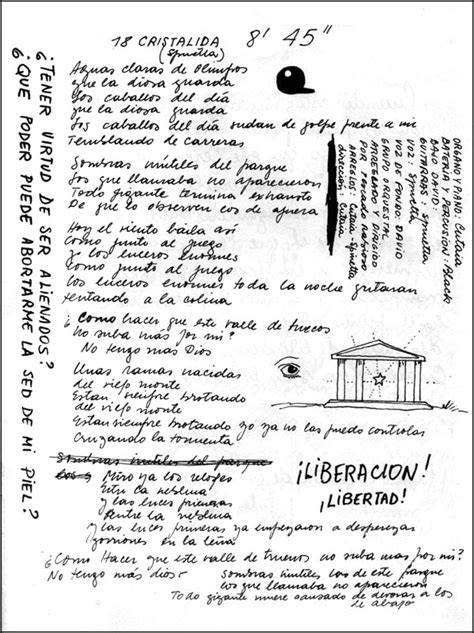 18 CRISTALIDA 8' 45"
(Spinetta)
Aguas claras de Olimpos
que la diosa guarda
Los caballos del día
que la diosa guarda
Los caballos del día sudan de golpe frente a mi
Temblando de carreras
Sombras inútiles del parque
Los que llamaba no aparecieron
Todo gigante termina exhausto
De que lo observen los de afuera
Hoy el viento baila así
Como junto al fuego
Y los luceros enormes
Como junto al fuego
Los luceros enormes toda la noche gritaran
tentando a la colina
¿Como hacer que este valle de truenos
No suba mas por mi?
No tengo mas Dios
Unas ramas nacidas
del viejo monte
Estan siempre brotando
del viejo monte
Estan siempre brotando yo ya no las puedo controlar
Cruzando la tormenta
Sombras inutiles del parque
Los q Miro ya los relojes
Entre la neblina
y las luces primeras
Entre la neblina
y las luces primeras ya empezaron a desperezar
gorriones en la leña
¿Como Hacer que este valle de truenos no suba mas por mi?
No tengo más dios
Sombras inútiles las de este parque
Los que llamaba no aparecieron
Todo gigante muere cansado de devorar a los
de abajo
¿TENER VIRTUD DE SER ALIENIDOS?
¿QUE PODER PUEDE ABORTARME LA SED DE MI PIEL?
ORGANO Y PIANO: Cutaia
BATERIA Y PERCUSION: Black
BAJO: DAVID
GUITARRAS: Spinetta
VOZ: Spinetta
VOZ DE FONDO: DAVID
GRUPO ORQUESTAL:
ARREGLADO Y DIRIGIDO
ARREGLOS: Cutaia, Spinetta
dirección: Cutaia
¡LIBERACION!
¡LIBERTAD!